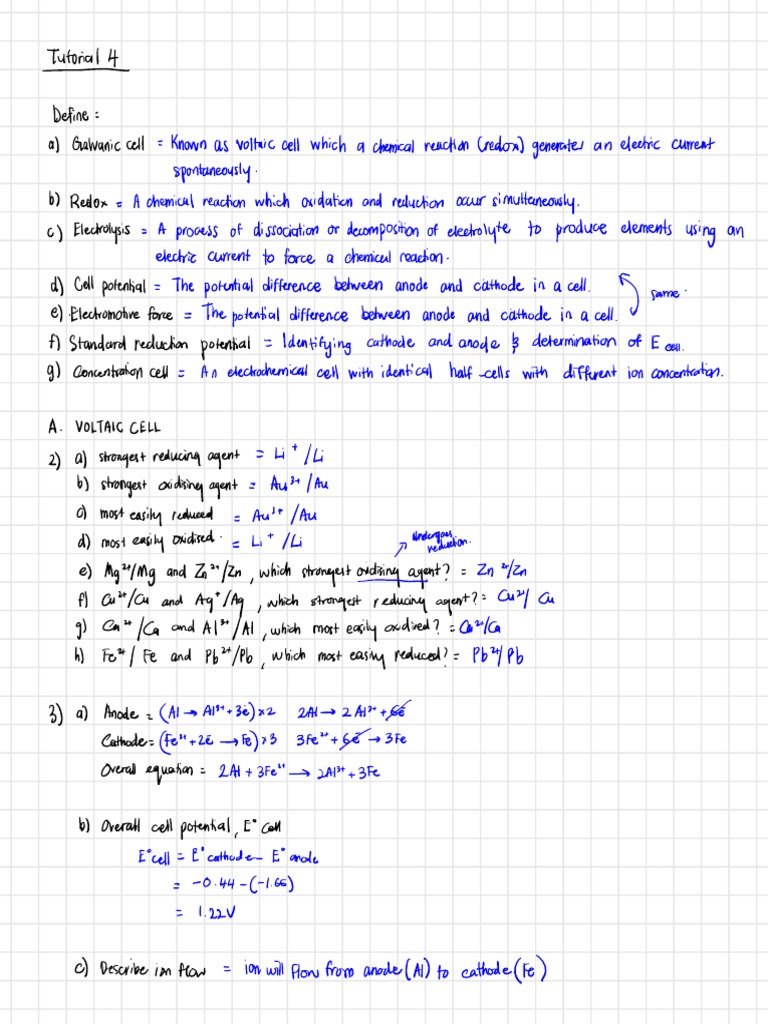 Tutorial 4
Define :
a) Galvanic cell = Known as voltaic cell which a chemical reaction (redox) generates an electric current
spontaneously.
b) Redox = A chemical reaction which oxidation and reduction occur simultaneously.
c) Electrolysis = A process of dissociation or decomposition of electrolyte to produce elements using an
electric current to force a chemical reaction.
d) Cell potential = The potential difference between anode and cathode in a cell.
same.
e) Electromotive force = The potential difference between anode and cathode in a cell.
f) Standard reduction potential = Identifying cathode and anode & determination of E cell.
g) Concentration cell = An electrochemical cell with identical half-cells with different ion concentration.
A. VOLTAIC CELL
2) a) strongest reducing agent = Li⁺/Li
b) strongest oxidising agent = Au³⁺/Au
c) most easily reduced = Au³⁺/Au
d) most easily oxidised. = Li⁺/Li
undergoes
reduction.
e) Mg²⁺/Mg and Zn²⁺/Zn, which strongest oxidising agent? = Zn²⁺/Zn
f) Cu²⁺/Cu and Ag⁺/Ag, which strongest reducing agent? = Cu²⁺/Cu
g) Ca²⁺/Ca and Al³⁺/Al, which most easily oxidised? = Ca²⁺/Ca
h) Fe²⁺/Fe and Pb²⁺/Pb, which most easily reduced? = Pb²⁺/Pb
3) a) Anode = (Al → Al³⁺ + 3e) ×2 2Al → 2Al³⁺ + 6e
Cathode = (Fe²⁺ + 2e → Fe) ×3 3Fe²⁺ + 6e → 3Fe
Overall equation = 2Al + 3Fe²⁺ → 2Al³⁺ + 3Fe
b) Overall cell potential, E° cell
E°cell = E°cathode - E°anode
= -0.44 - (-1.66)
= 1.22V
c) Describe ion flow = ion will flow from anode (Al) to cathode (Fe)